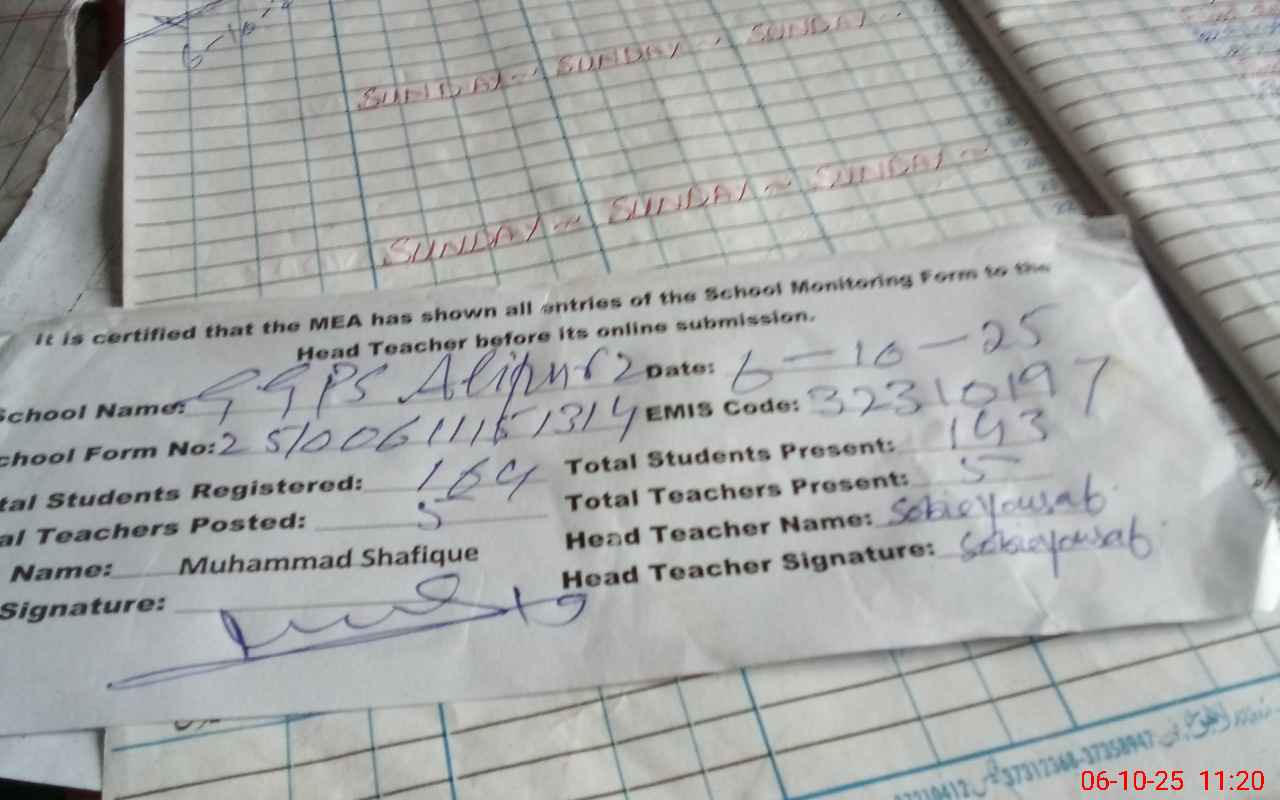 6-10-2
SUNDAY - SUNDAY - SUNDAY -
SUNDAY ~ SUNDAY ~ SUNDAY ~
It is certified that the MEA has shown all entries of the School Monitoring Form to the
Head Teacher before its online submission.
School Name: GGPS Alipur 2 Date: 6-10-25
chool Form No: EMIS Code: 32310197
tal Students Registered: 164 Total Students Present: 143
al Teachers Posted: 5 Total Teachers Present: 5
Name: Muhammad Shafique Head Teacher Name: Sobia Yousaf
Signature: Head Teacher Signature: Sobia Yousaf
37312368-37358947
06-10-25 11:20